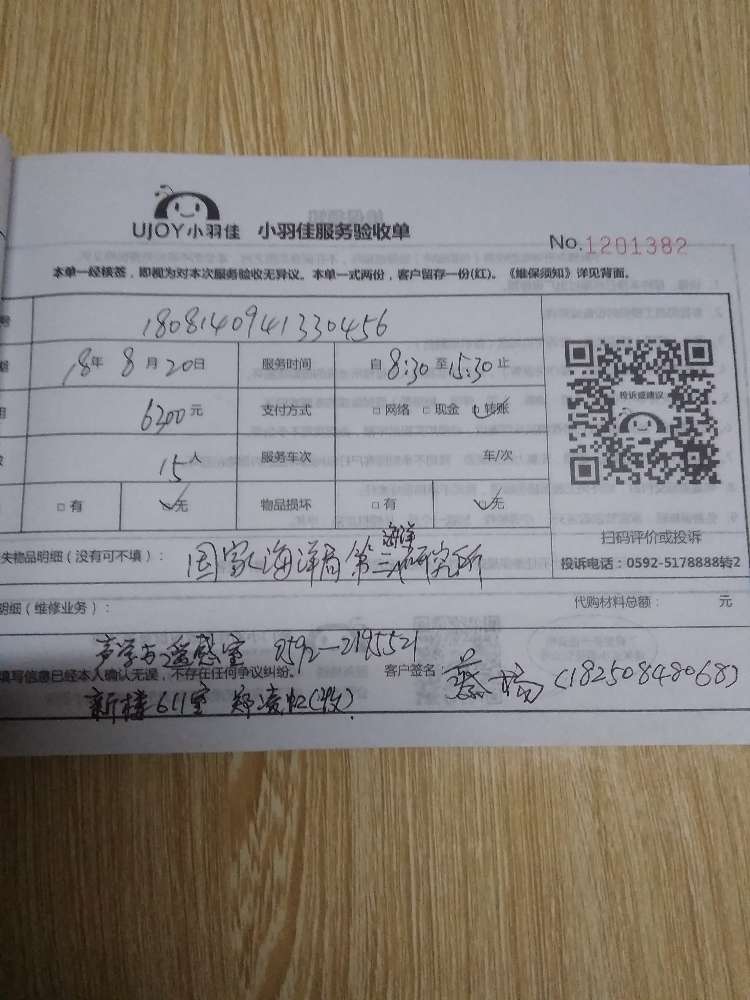 UJOY小羽佳 小羽佳服务验收单
No.1201382
本单一经核签，即视为对本次服务验收无异议。本单一式两份，客户留存一份(红)。《维保须知》详见背面。
号 1808140941330456
18年 8月20日 服务时间 自8:30至15:30止
6200元 支付方式 □网络 □现金 □转账
15人 服务车次 车/次
□有 □无 物品损坏 □有 □无
投诉或建议
扫码评价或投诉
投诉电话：0592-5178888转2
失物品明细（没有可不填）： 国家海洋局第三海洋研究所
明细（维修业务）： 代购材料总额： 元
声学与遥感室 0592-2195521
填写信息已经本人确认无误，不存在任何争议纠纷。 客户签名： (18250848068)
新楼611室 郑凌虹(收)